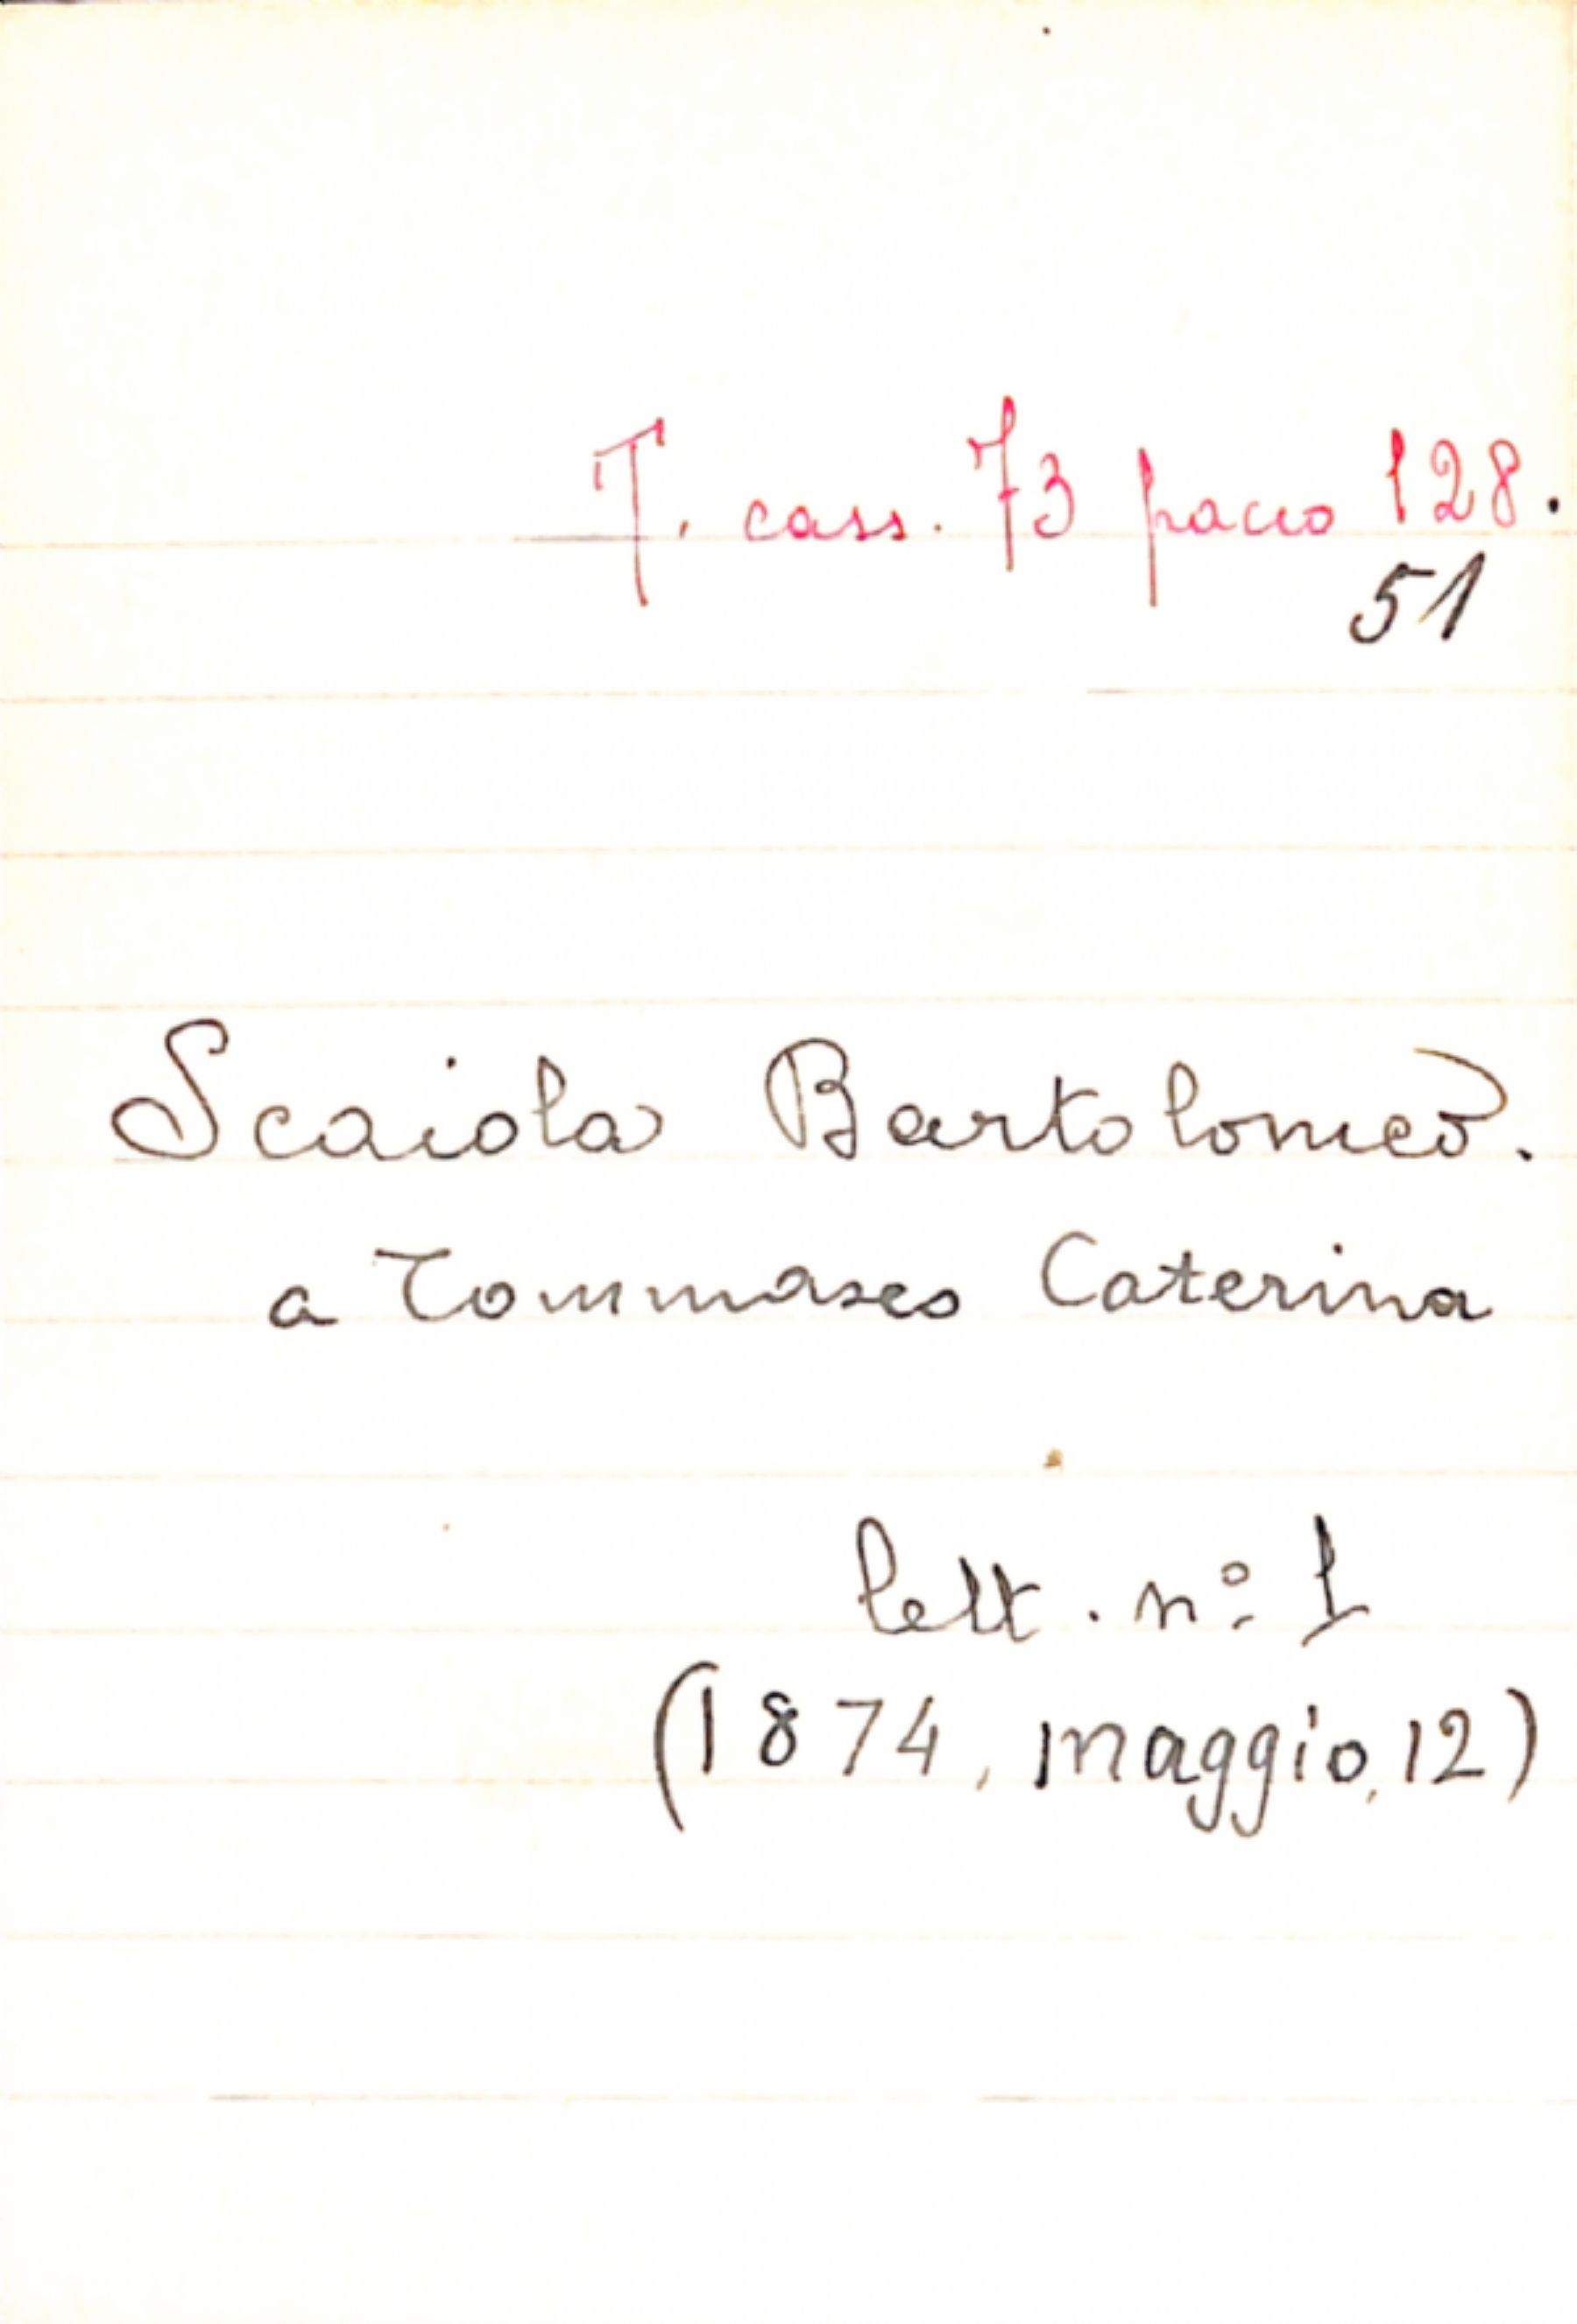 T. cass. 73 pacco 128.
51
Scaiola Bartolomeo.
a Tommaseo Caterina
lett. nº 1
(1874, maggio, 12)